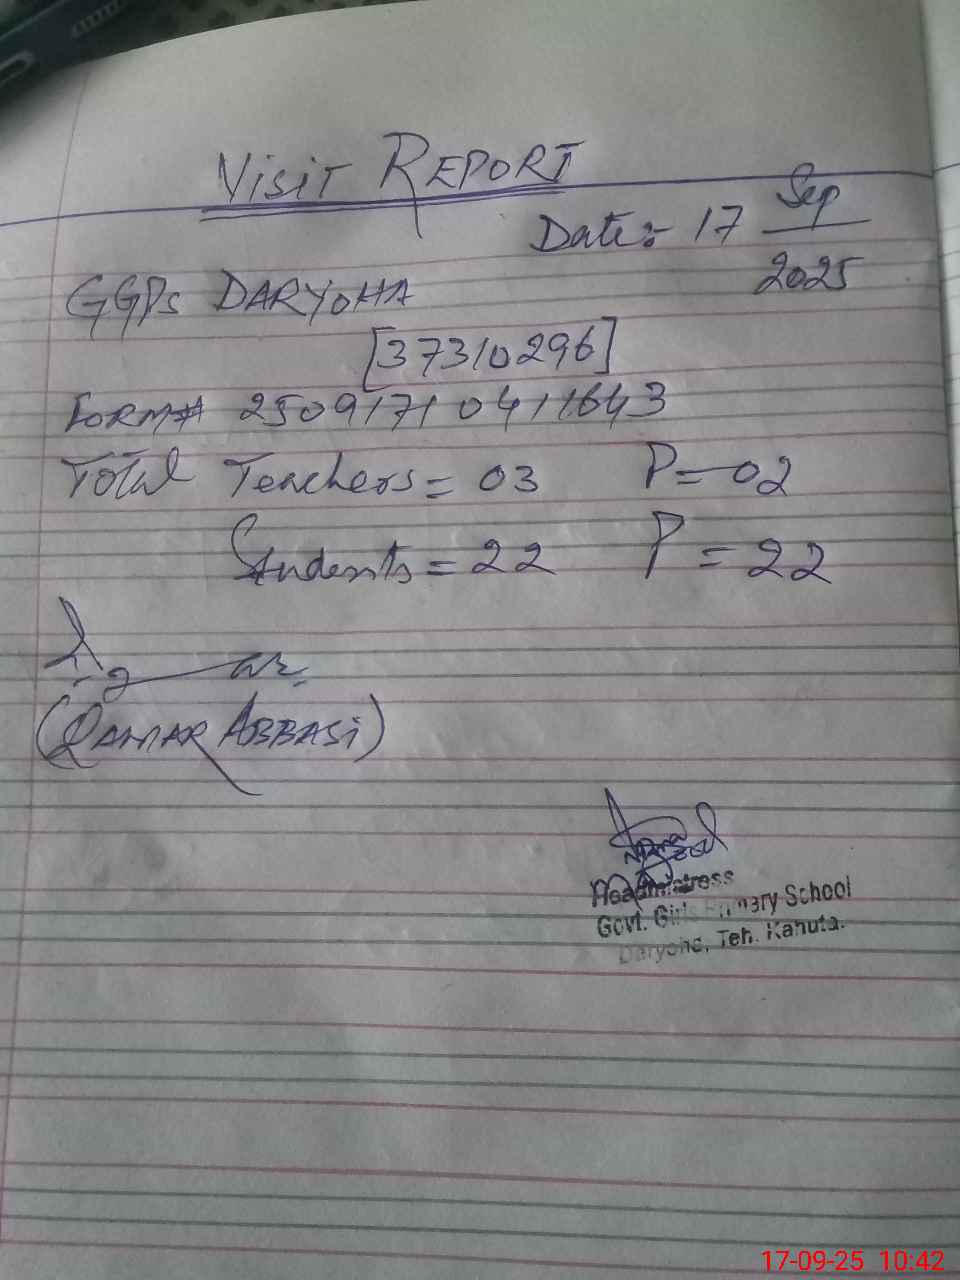 VISIT REPORT
Date:- 17 Sep
2025
GGPS DARYOHA
[37310296]
FORM# 25091710411643
Total Teachers = 03 P = 02
Students = 22 P = 22
(QAMAR ABBASI)
Headmistress
Govt. Girls Primary School
Daryoha, Teh. Kahuta.
17-09-25 10:42